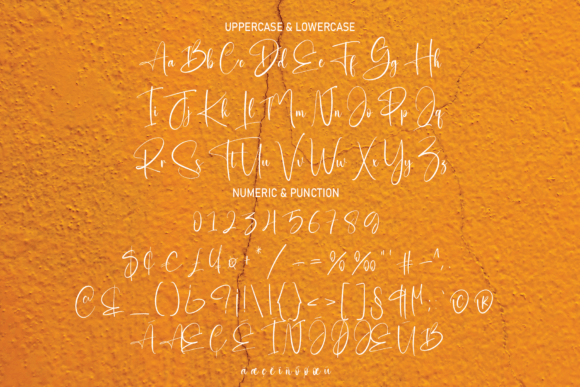 UPPERCASE & LOWERCASE
Aa Bb Cc Dd Ee Ff Gg Hh
Ii Jj Kk Ll Mm Nn Oo Pp Qq
Rr Ss Tt Uu Vv Ww Xx Yy Zz
NUMERIC & PUNCTION
0 1 2 3 4 5 6 7 8 9
/ - = % ‰ " ' #
@ & _ ( ) | \ | { } < > [ ] § ¶ © ®